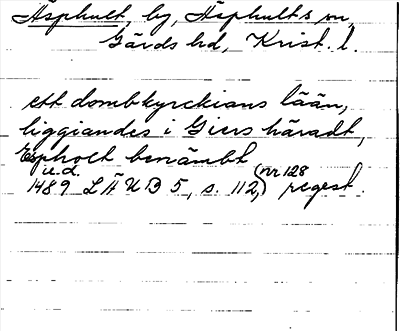 Äsphult, by, Äsphults sn,
Gärds hd, Krist. l.
ett dombkyrckians lään,
liggiandes i Giers häradt,
Espholt benämbt
u.d. (nr 128
1489 LÄUB 5, s. 112,) regest.